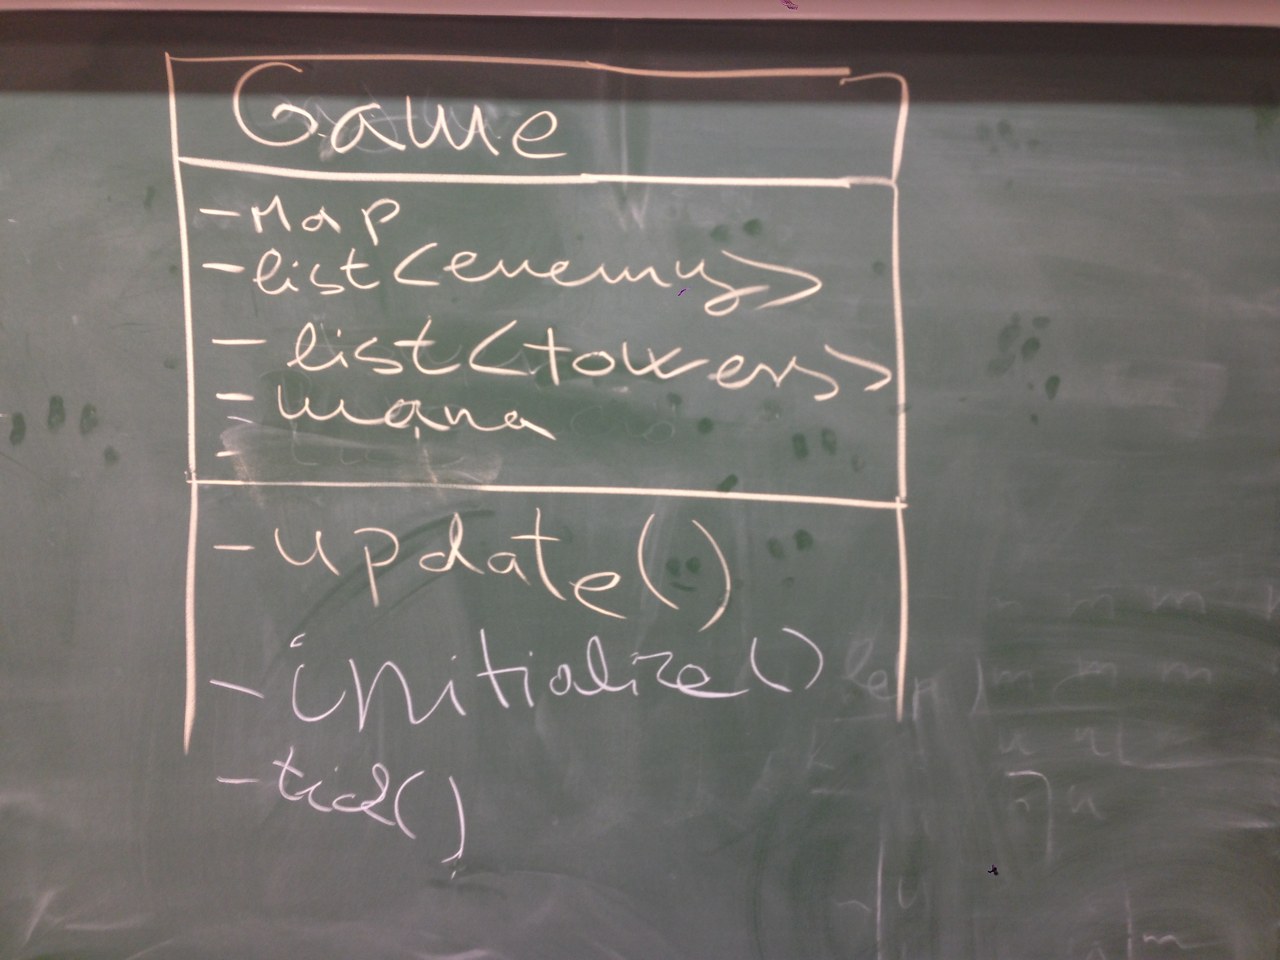 Game
- Map
- list<enemy>
- list<towers>
- mana
-
- update()
- initialize()
- tid()